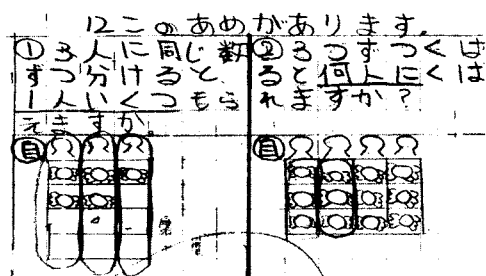 12このあめがあります。
① 3人に同じ数
ずつ分けると
1人いくつもら
えますか。
② 3つずつくば
ると何人にくば
れますか?
自
自